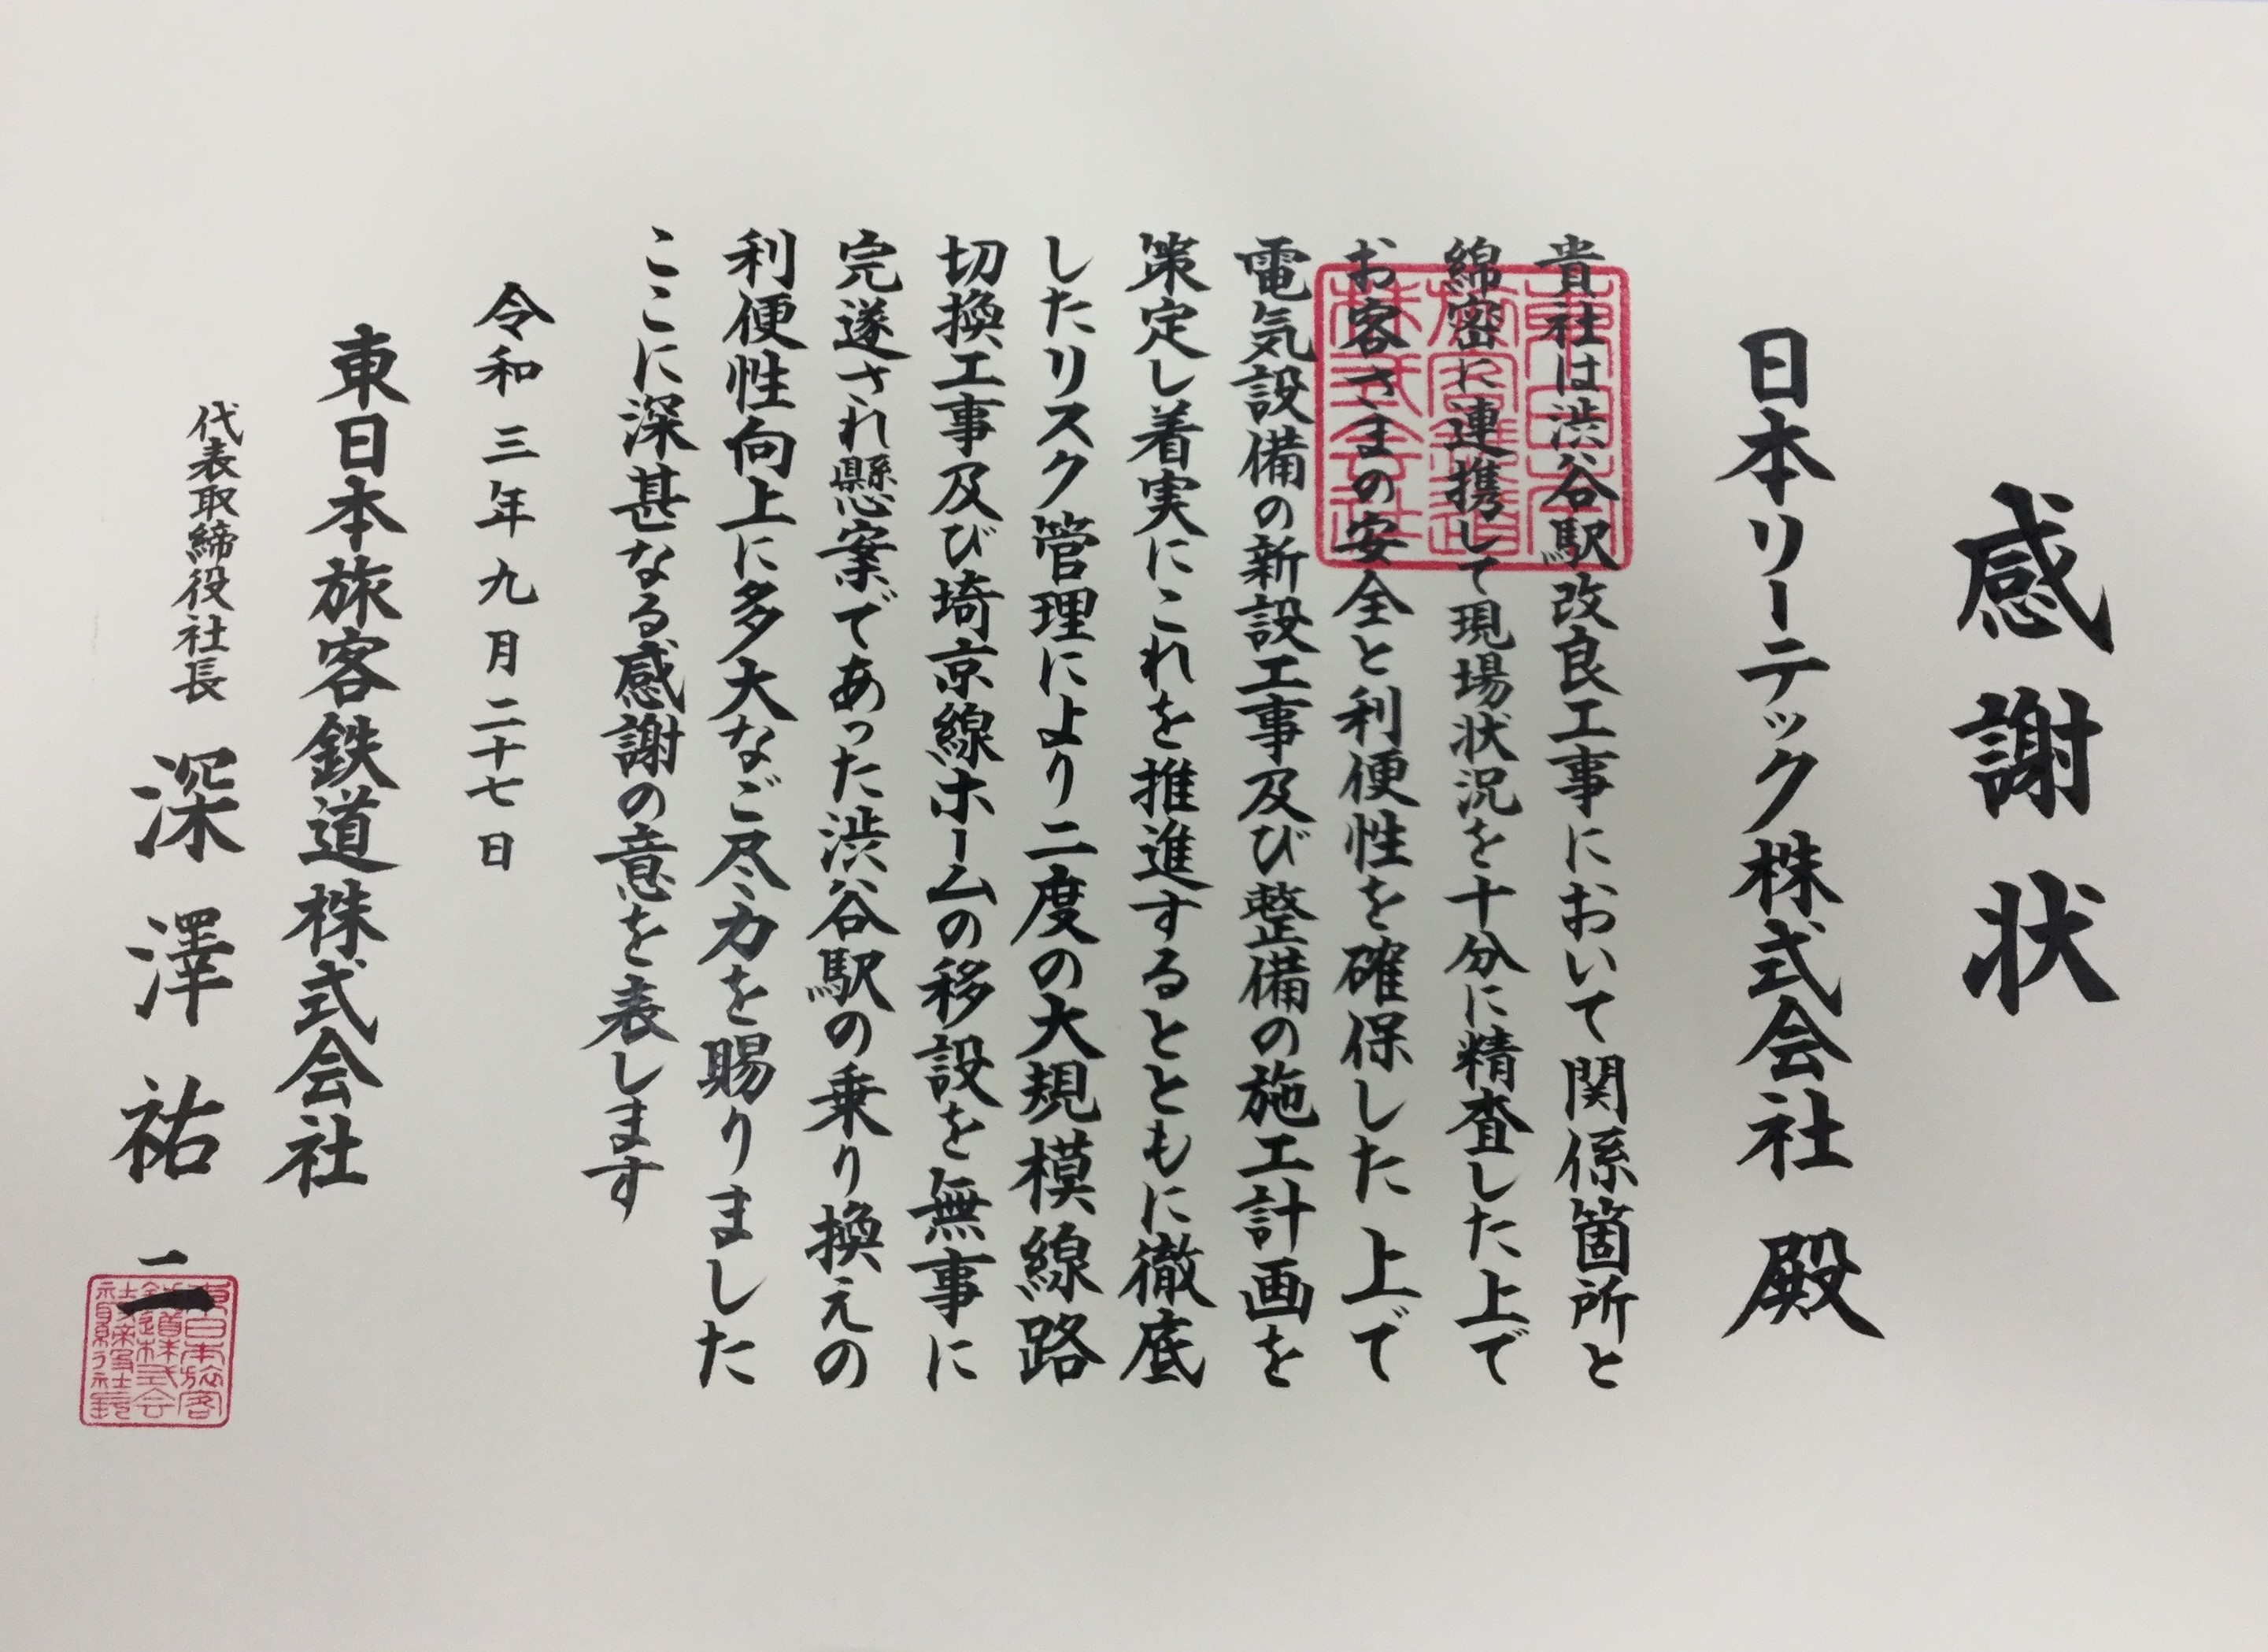 感謝状
日本リーテック株式会社 殿
貴社は渋谷駅改良工事において関係箇所と
綿密に連携して現場状況を十分に精査した上で
お客さまの安全と利便性を確保した上で
電気設備の新設工事及び整備の施工計画を
策定し着実にこれを推進するとともに徹底
したリスク管理により二度の大規模線路
切換工事及び埼京線ホームの移設を無事に
完遂され懸案であった渋谷駅の乗り換えの
利便性向上に多大なご尽力を賜りました
ここに深甚なる感謝の意を表します
令和三年九月二十七日
東日本旅客鉄道株式会社
代表取締役社長 深澤祐二
東日本
旅客鉄道
株式会社
東日本旅客
鉄道株式会
社取締役社長